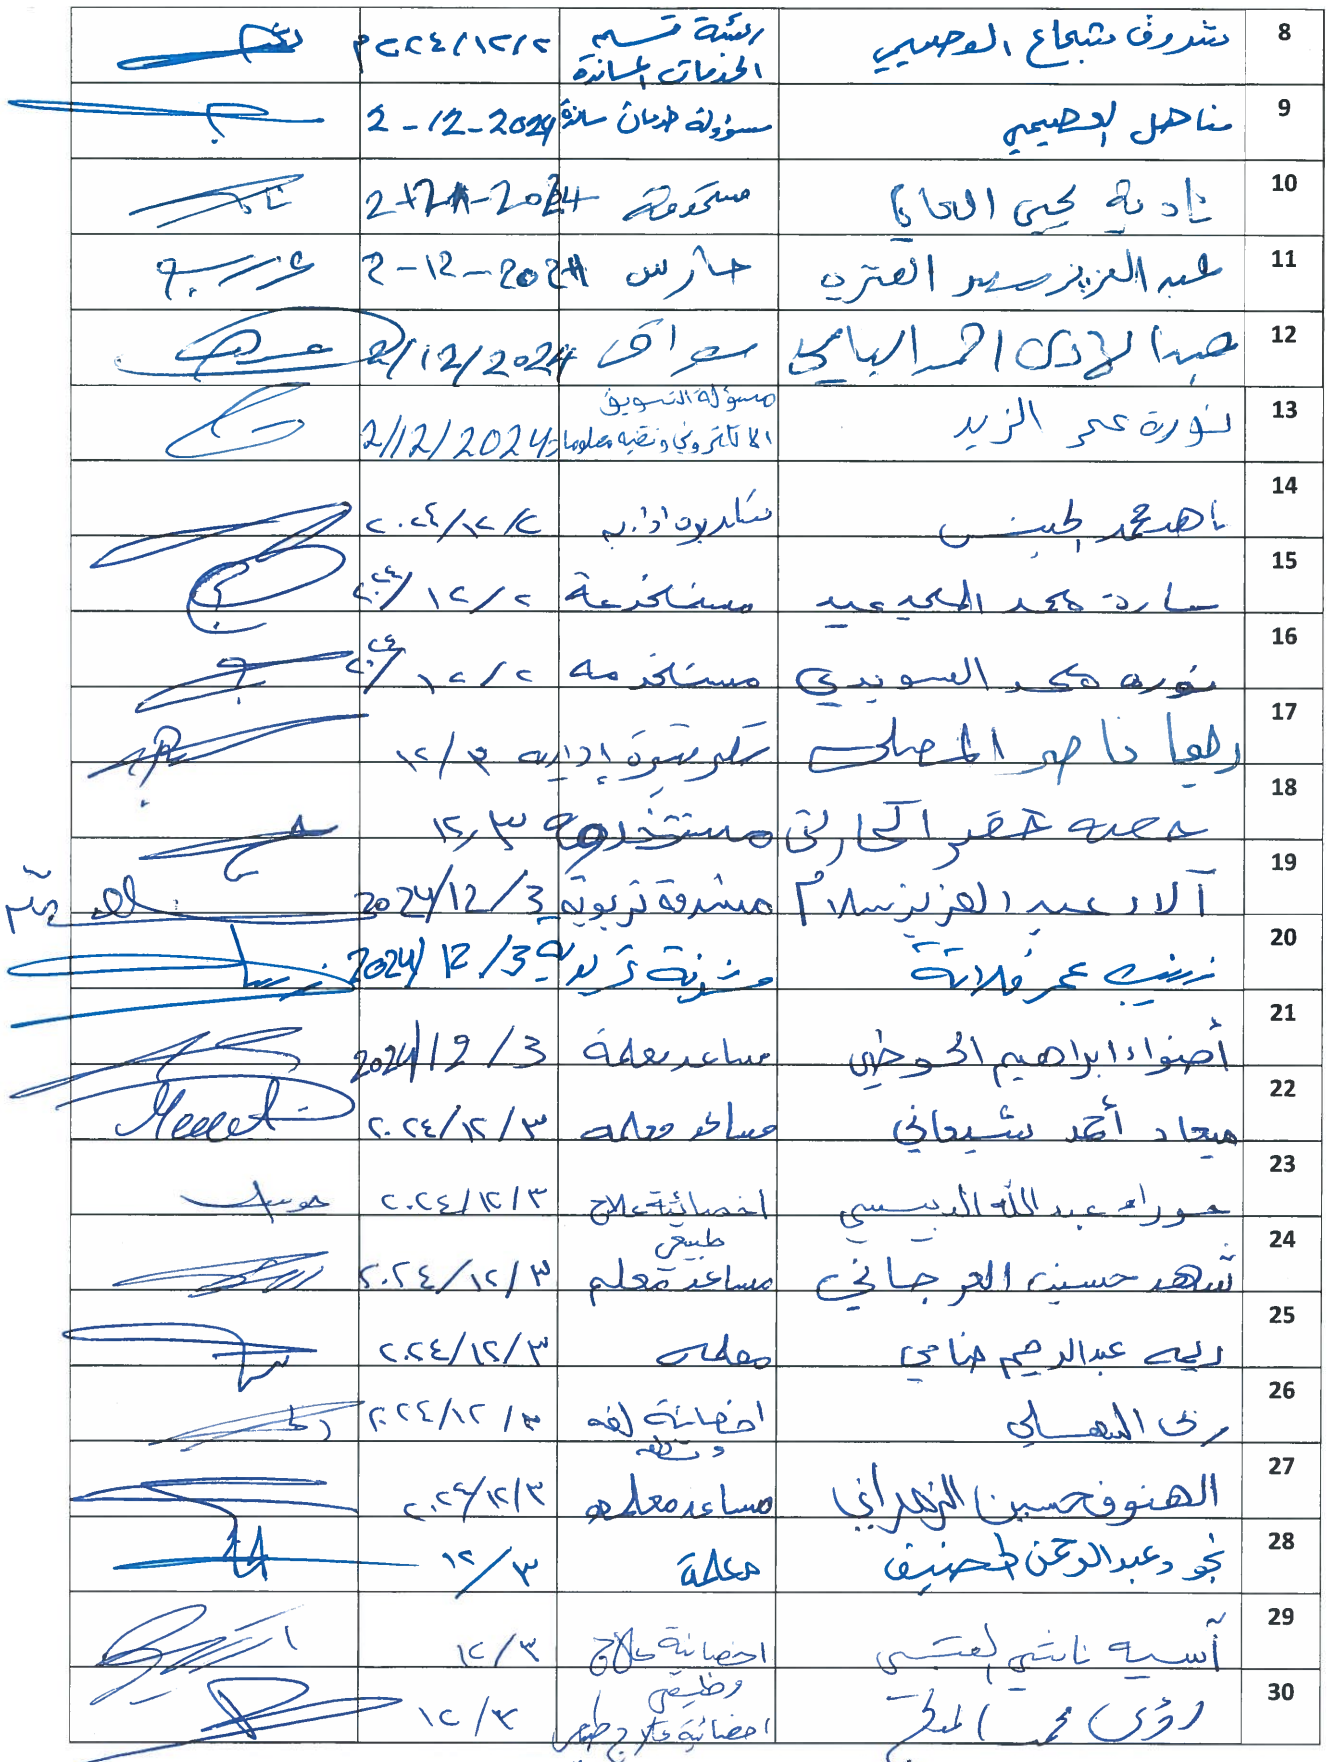 8 شروق شجاع العصيمي رئيسة قسم الخدمات المساندة ٢٠٢٤/١٢/٢م
9 مناهل العصيمي مسؤولة خدمات ساندة 2-12-2024
10 نادية يحيى مستخدمة 2-12-2024
11 عبد العزيز سعد العنزي حارس 2-12-2024
12 عبدالهادي احمد اليامي سواق 2/12/2024
13 نورة عمر الزيد مسؤولة التسويق الالكتروني وتقنيه معلومات 2/12/2024
14 ناهد محمد ٢٠٢٤/١٢/٢
15 سارة محمد مستخدمة ٢٠٢٤/١٢/٢
16 نوره محمد السويدي مستخدمه ٢٠٢٤/١٢/٢
17 ناصر سكرتيرة إداريه ١٢/٣
18 حصه الحارثي مستخدمة ١٢/٣
19 آلاء عبد العزيز سلام مشرفة تربوية 2024/12/3
20 زينب عمر فلاتة مشرفة تربوية 2024/12/3
21 أضواء ابراهيم مساعد معلمة 2024/12/3
22 ميعاد أحمد شيعاني مساعد معلمه ٢٠٢٤/١٢/٣
23 حوراء عبدالله الدبيسي اخصائية علاج طبيعي ٢٠٢٤/١٢/٣
24 شهد حسين العرجاني مساعدة معلم ٢٠٢٤/١٢/٣
25 ريمه عبدالرحيم معلمه ٢٠٢٤/١٢/٣
26 السهلي اخصائية لغه ٢٠٢٤/١٢/٣
27 الهنوف حسين الزهراني مساعد معلمه ٢٠٢٤/١٢/٣
28 نجود عبدالرحمن معلمة ١٢/٣
29 آسيه اخصائية علاج وظيفي ١٢/٣
30 رؤى محمد اخصائية علاج طبيعي ١٢/٣